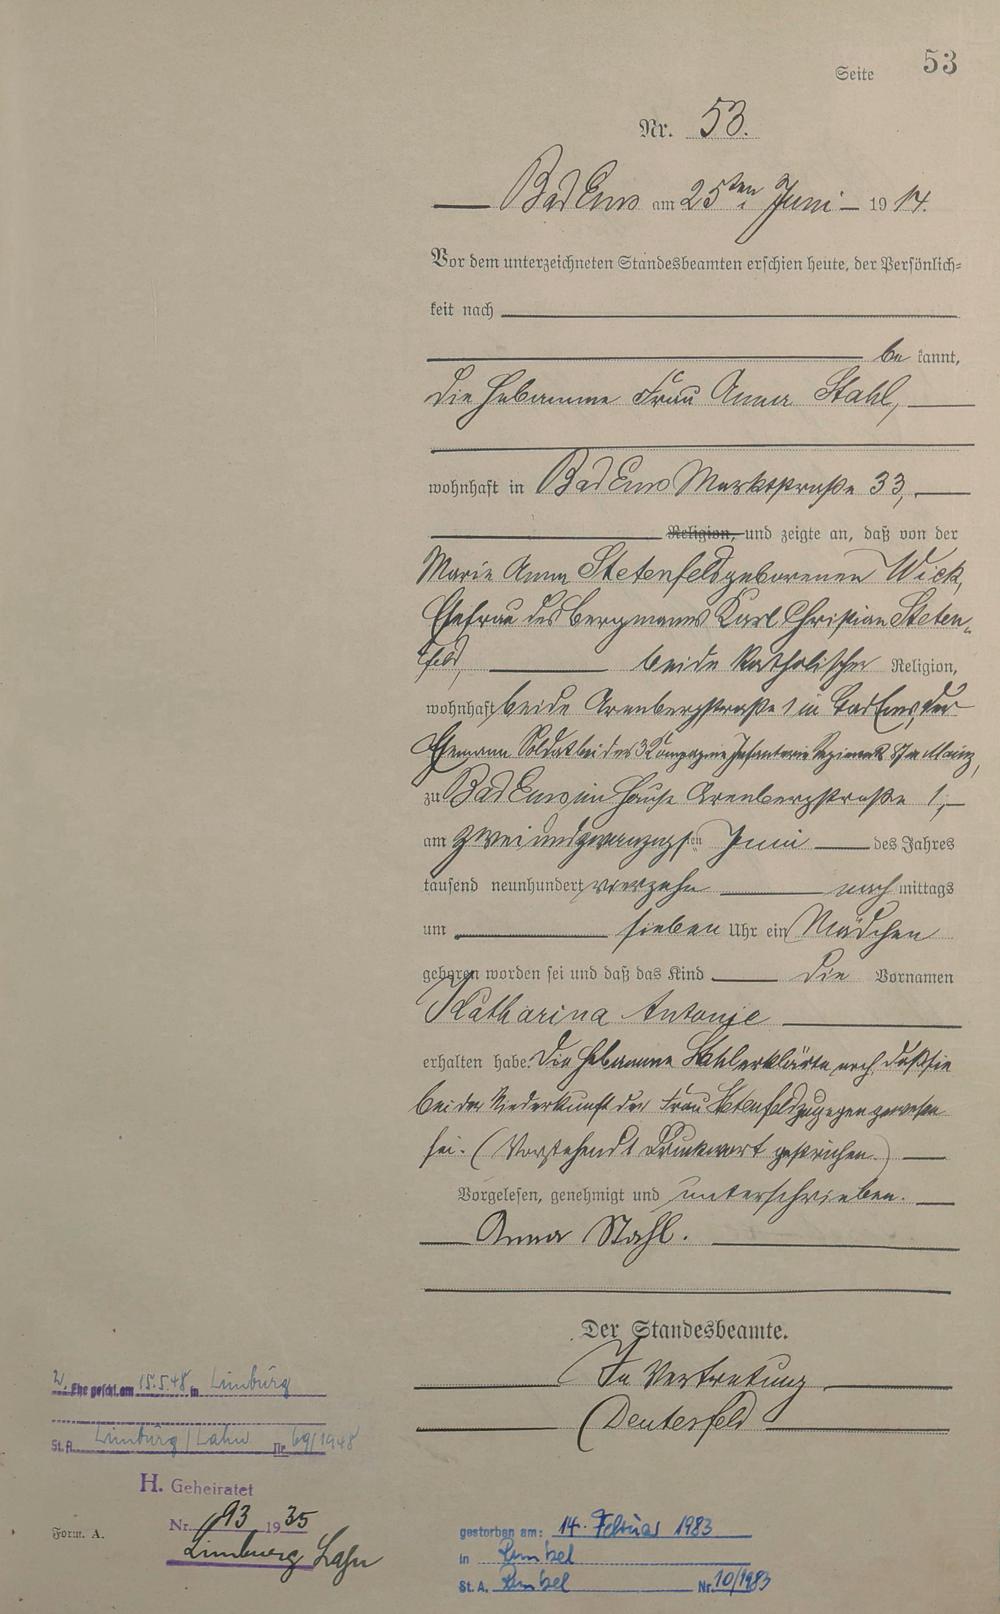 Seite 53
Nr. 53.
Bad Ems am 25ten Juni 1914.
Vor dem unterzeichneten Standesbeamten erschien heute, der Persönlich-
keit nach
be kannt,
die Hebamme Frau Anna Stahl,
wohnhaft in Bad Ems Marktstraße 33,
Religion, und zeigte an, daß von der
Marie Anna Stetenfeld geborenen Wick,
Ehefrau des Bergmanns Karl Christian Steten-
feld, beide katholischer Religion,
wohnhaft beide Arenbergstraße 1 in Bad Ems, der
Ehemann Soldat bei der 3 Kompagnie Infanterie Regiment 87 in Mainz,
zu Bad Ems im Hause Arenbergstraße 1,
am zweiundzwanzigsten Juni des Jahres
tausend neunhundert vierzehn nach mittags
um sieben Uhr ein Mädchen
geboren worden sei und daß das Kind die Vornamen
Katharina Antonie
erhalten habe. Die Hebamme Stahl erklärte noch, daß sie
bei der Niederkunft der Frau Stetenfeld zugegen gewesen
sei. (Vorstehend 1 Druckwort gestrichen.)
Vorgelesen, genehmigt und unterschrieben.
Anna Stahl.
Der Standesbeamte.
In Vertretung
Deuterfeld
2. Ehe geschl. am 15.5.48 in Limburg
St. A. Limburg/Lahn Nr. 69/1948
H. Geheiratet
Nr. 93 1935
Limburg Lahn
Form. A.
gestorben am: 14. Februar 1983
in
St. A. Nr. 10/1983